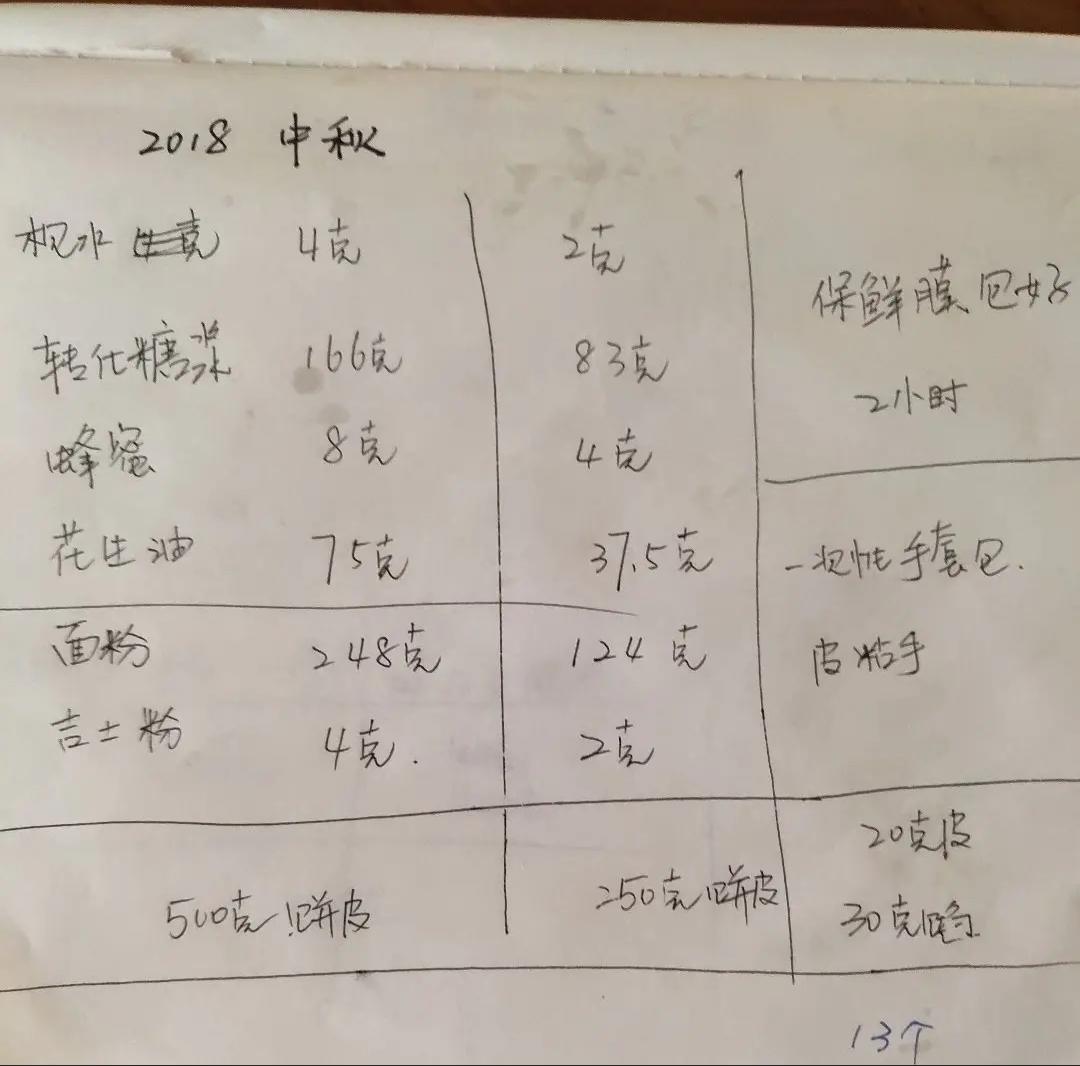 2018 中秋
枧水 4克 2克
转化糖浆 166克 83克
蜂蜜 8克 4克
花生油 75克 37.5克
面粉 248克 124克
吉士粉 4克. 2克
500克饼皮 250克饼皮
保鲜膜包好
2小时
一次性手套包.
皮粘手
20克皮
30克馅
13个